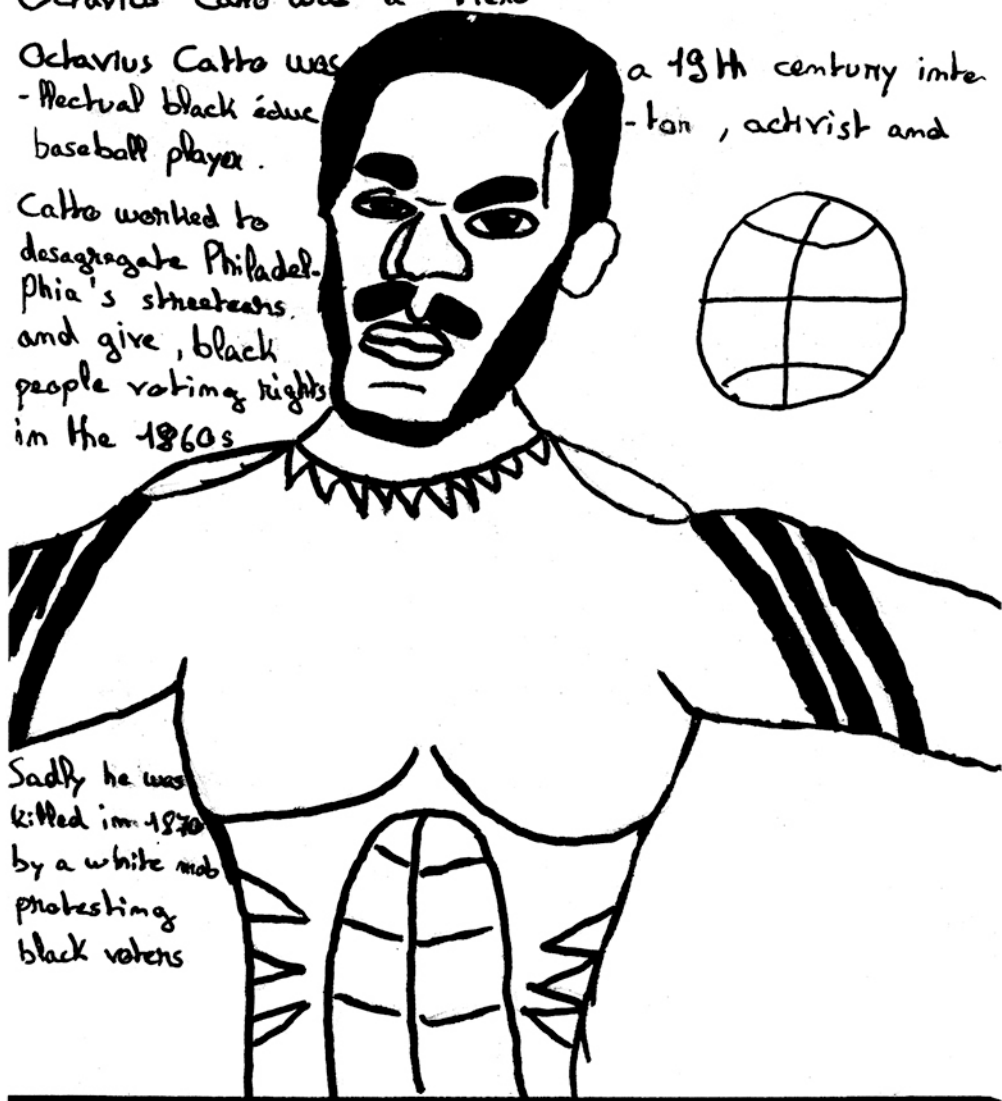 Octavius Catto was a Hero
Octavius Catto was a 19th century inte
-llectual black éduc -tor, activist and
baseball player.
Catto worked to
desagregate Philadel-
phia's streetcars.
and give, black
people voting rights
in the 1860s
Sadly he was
killed in 1870
by a white mob
protesting
black voters